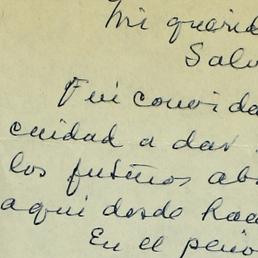 Mi querid
Salv
Fui convida
cuidad a dar
los futuros abo
aqui desde hac
En el perio